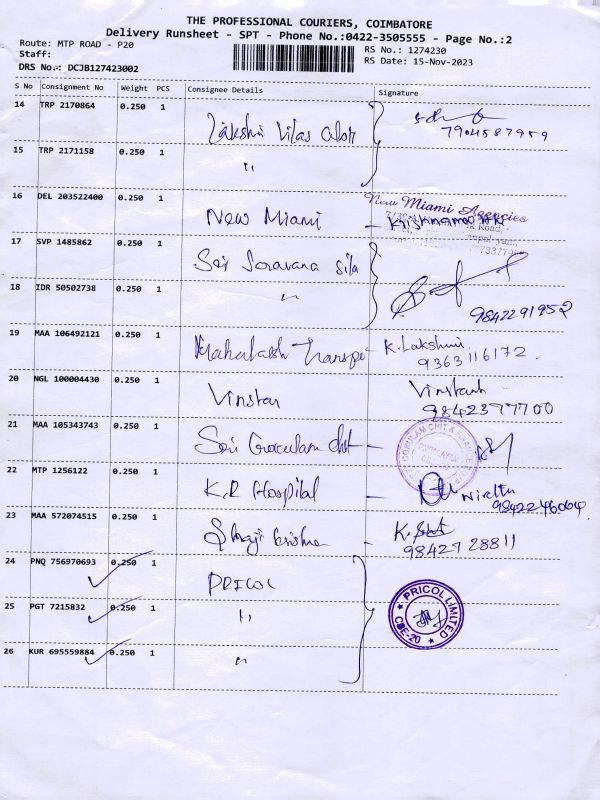 THE PROFESSIONAL COURIERS, COIMBATORE
Delivery Runsheet - SPT - Phone No.:0422-3505555 - Page No.:2
Route: MTP ROAD - P20
RS No.: 1274230
Staff:
RS Date: 15-Nov-2023
DRS No.: DCJB127423002
S No Consignment No Weight PCS Consignee Details Signature
14 TRP 2170864 0.250 1
7904587959
15 TRP 2171158 0.250 1 "
16 DEL 203522400 0.250 1 New Miami
New Miami Agencies
Road,
17 SVP 1485862 0.250 1 Sri Saravana
18 IDR 50502738 0.250 1 "
9842291952
19 MAA 106492121 0.250 1 K. Lakshmi
9363116172.
20 NGL 100004430 0.250 1 Vinstar
9842377700
21 MAA 105343743 0.250 1 Sri Gokulam Chit
22 MTP 1256122 0.250 1 K.R Hospital
9842246064
23 MAA 572074515 0.250 1
9842728811
24 PNQ 756970693 0.250 1 PRICOL
25 PGT 7215832 0.250 1 "
PRICOL LIMITED
CBE-20
26 KUR 695559884 0.250 1 "